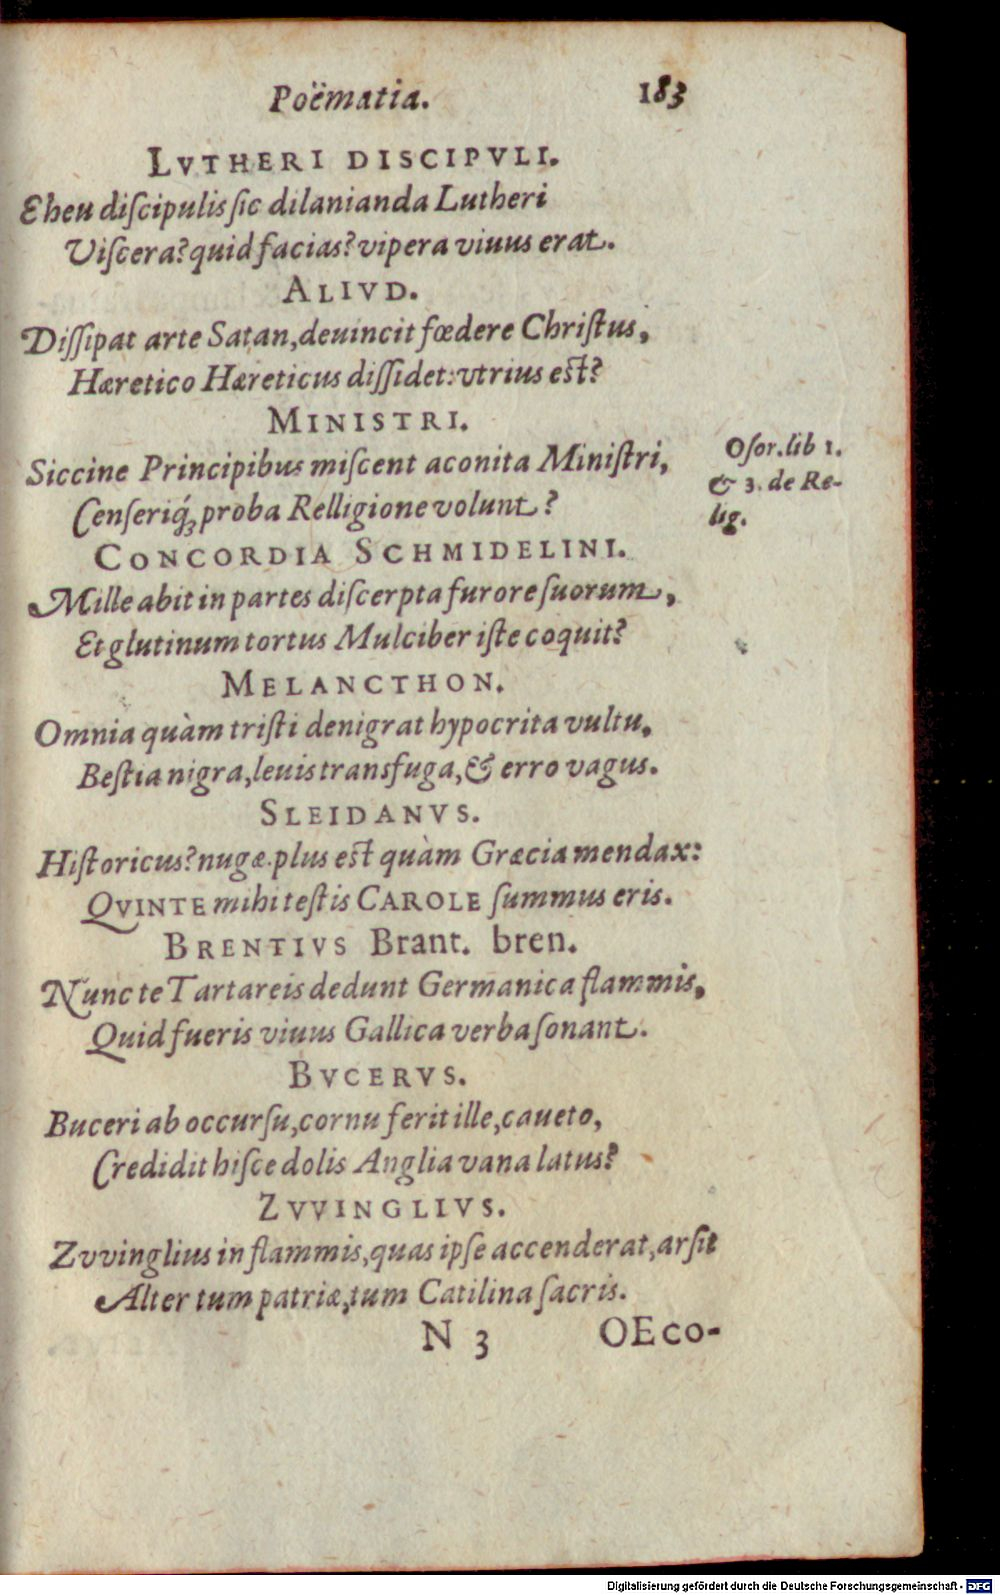 Poëmatia. 183
LVTHERI DISCIPVLI.
Eheu diſcipulis ſic dilanianda Lutheri
Viſcera? quid facias? vipera viuus erat.
ALIVD.
Diſſipat arte Satan, deuincit fœdere Chriſtus,
Hæretico Hæreticus diſſidet: vtrius eſt?
MINISTRI.
Siccine Principibus miſcent aconita Miniſtri,
Cenſeriq́; proba Relligione volunt?
Oſor. lib 1.
& 3. de Re-
lig.
CONCORDIA SCHMIDELINI.
Mille abit in partes diſcerpta furore ſuorum,
Et glutinum tortus Mulciber iſte coquit?
MELANCTHON.
Omnia quàm triſti denigrat hypocrita vultu,
Beſtia nigra, leuis transfuga, & erro vagus.
SLEIDANVS.
Hiſtoricus? nugæ. plus eſt quàm Græcia mendax:
QVINTE mihi teſtis CAROLE ſummus eris.
BRENTIVS Brant. bren.
Nunc te Tartareis dedunt Germanica flammis,
Quid fueris viuus Gallica verba ſonant.
BVCERVS.
Buceri ab occurſu, cornu ferit ille, caueto,
Credidit hiſce dolis Anglia vana latus?
ZVVINGLIVS.
Zvvinglius in flammis, quas ipſe accenderat, arſit
Alter tum patriæ, tum Catilina ſacris.
N 3 OEco-
Digitalisierung gefördert durch die Deutsche Forschungsgemeinschaft - DFG